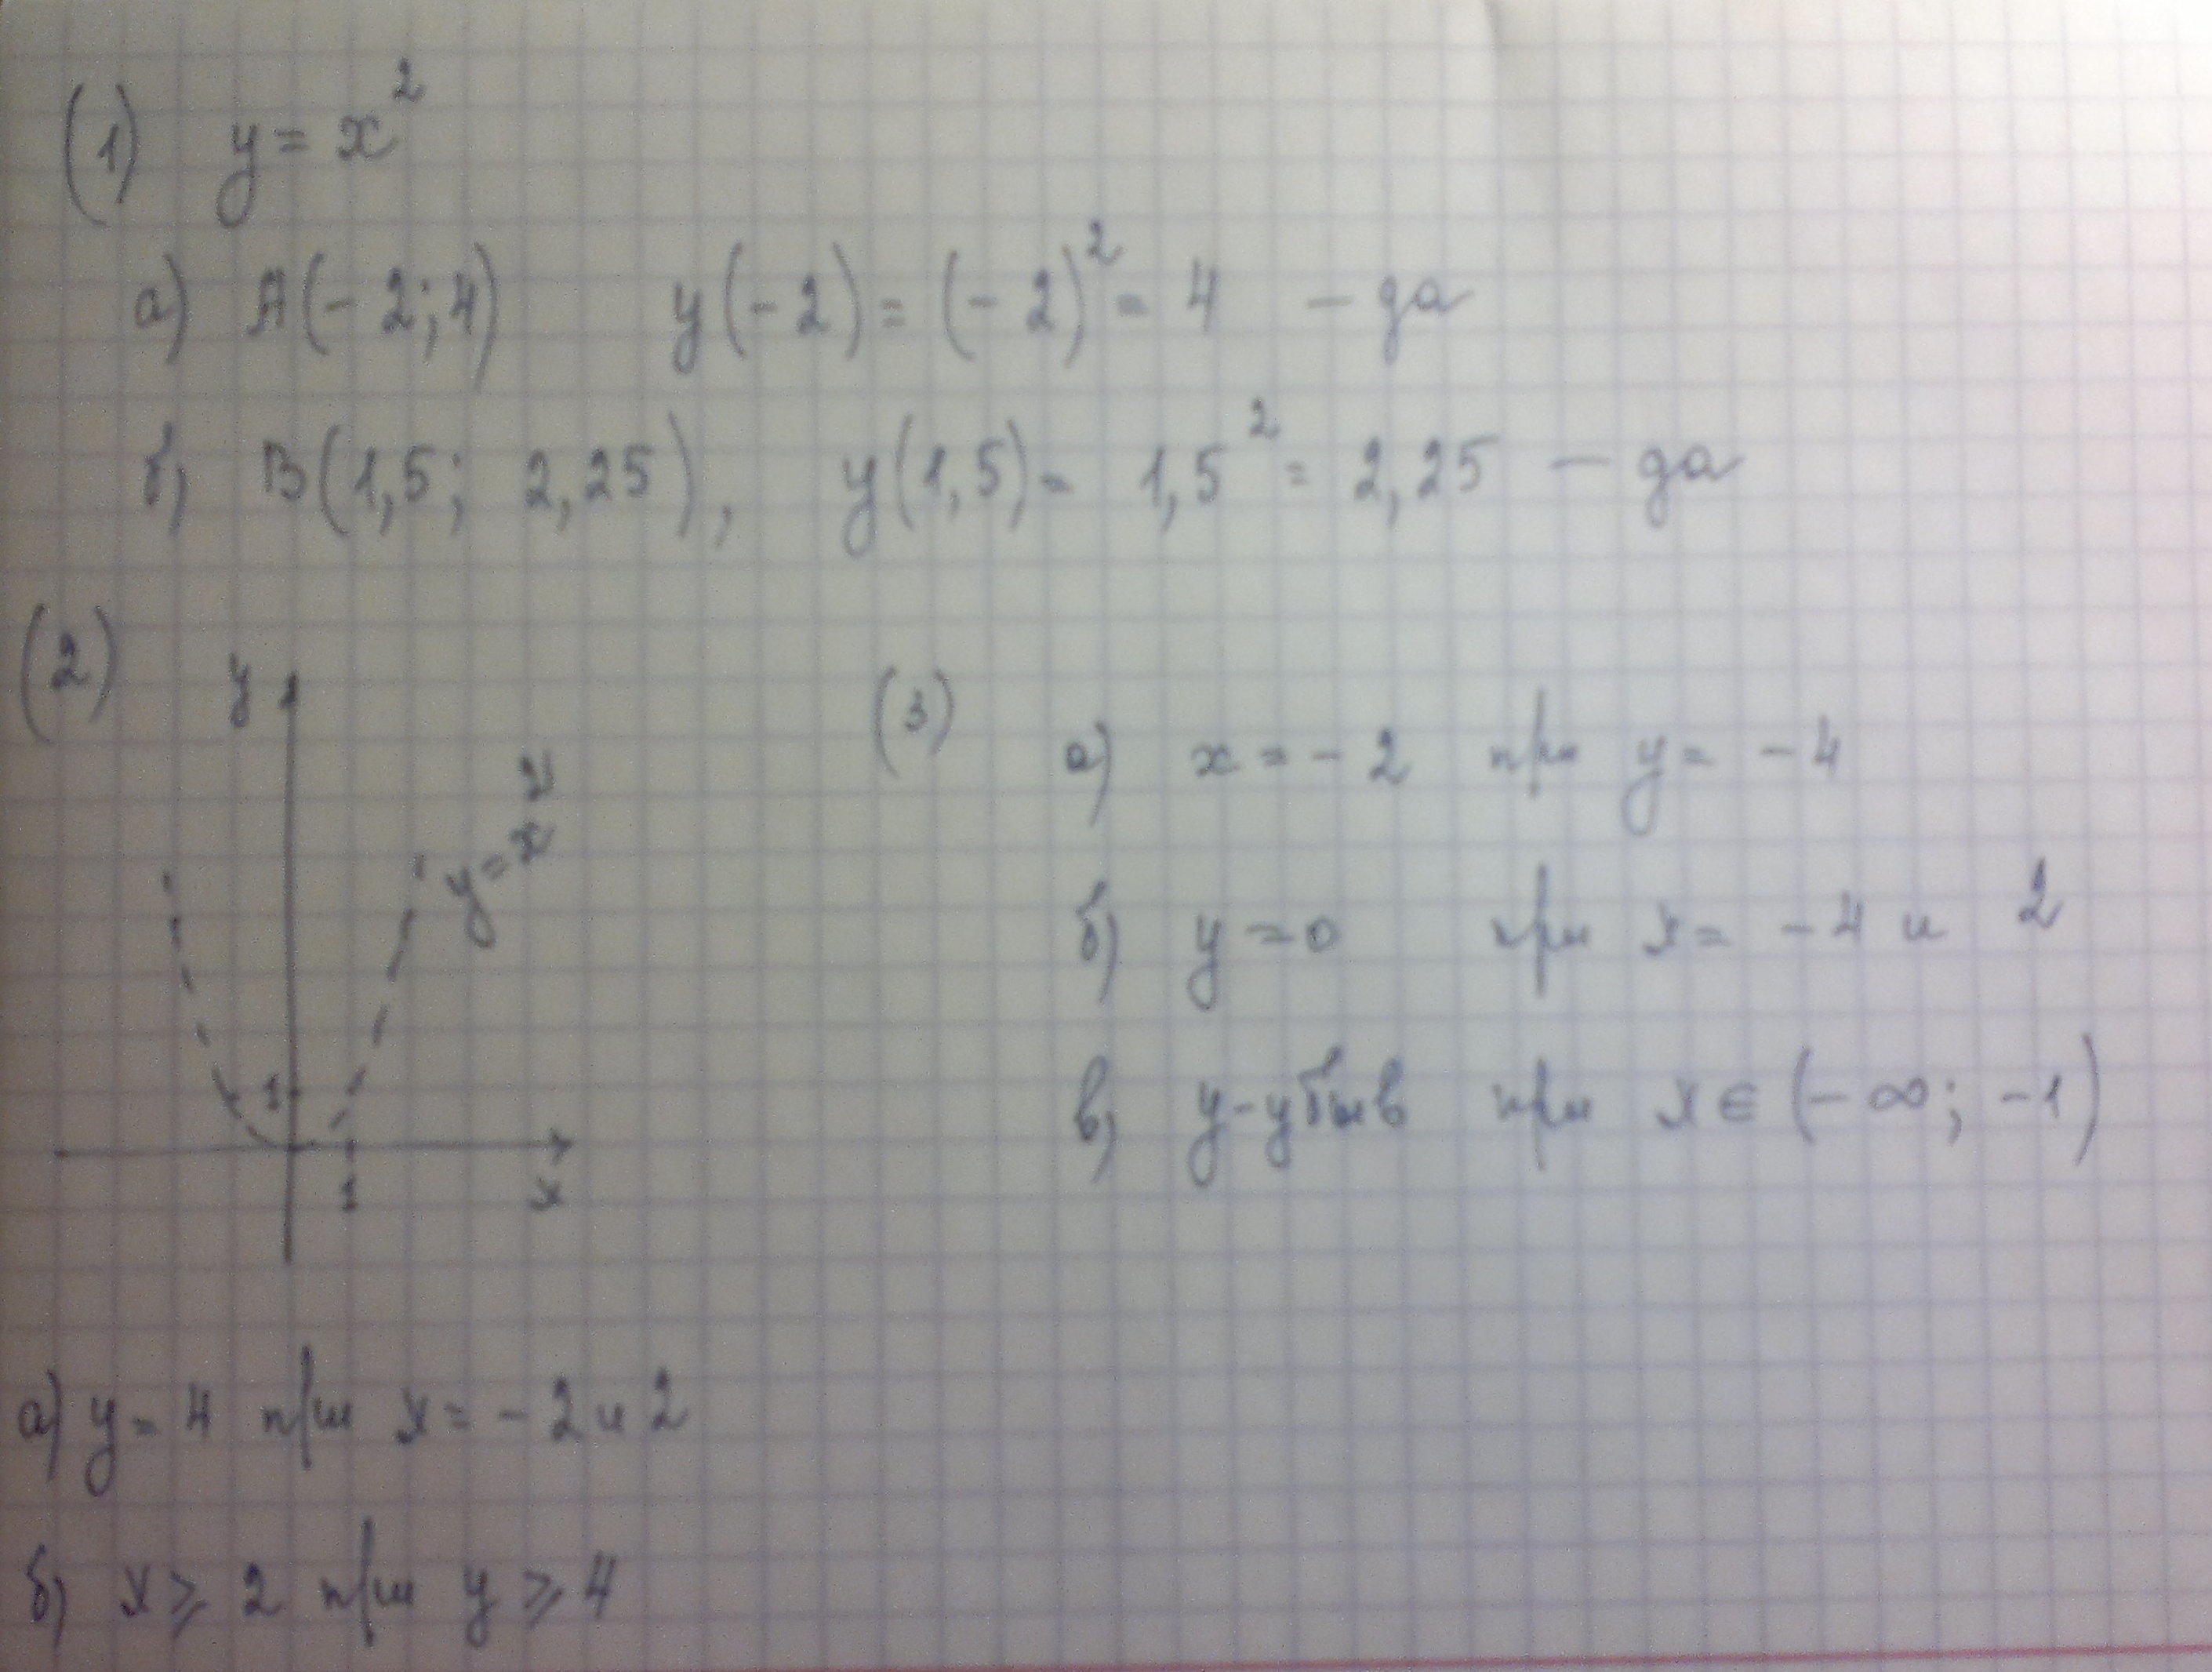 (1) y = x²
а) A(-2;4) y(-2) = (-2)² = 4 – да
б) B(1,5; 2,25), y(1,5) = 1,5² = 2,25 – да
(2)
y
y = x²
1
1
x
а) y = 4 при x = -2 и 2
б) x ⩾ 2 при y ⩾ 4
(3)
а) x = -2 при y = -4
б) y = 0 при x = -4 и 2
в) y - убыв при x ∈ (-∞; -1)